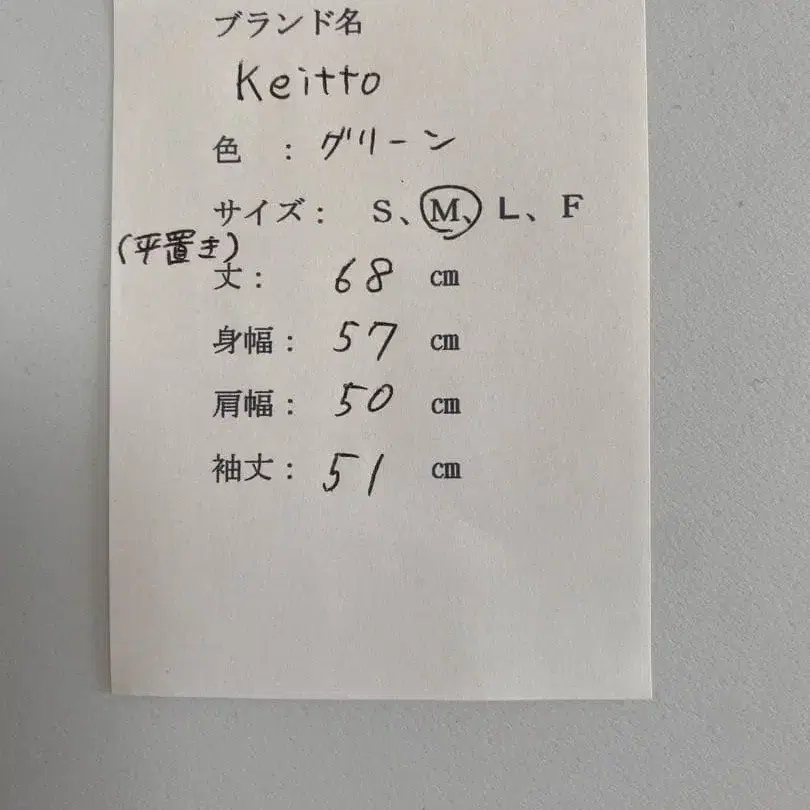 ブランド名
Keitto
色 : グリーン
サイズ: S、M、L、F
(平置き)
丈: 68 cm
身幅: 57 cm
肩幅: 50 cm
袖丈: 51 cm